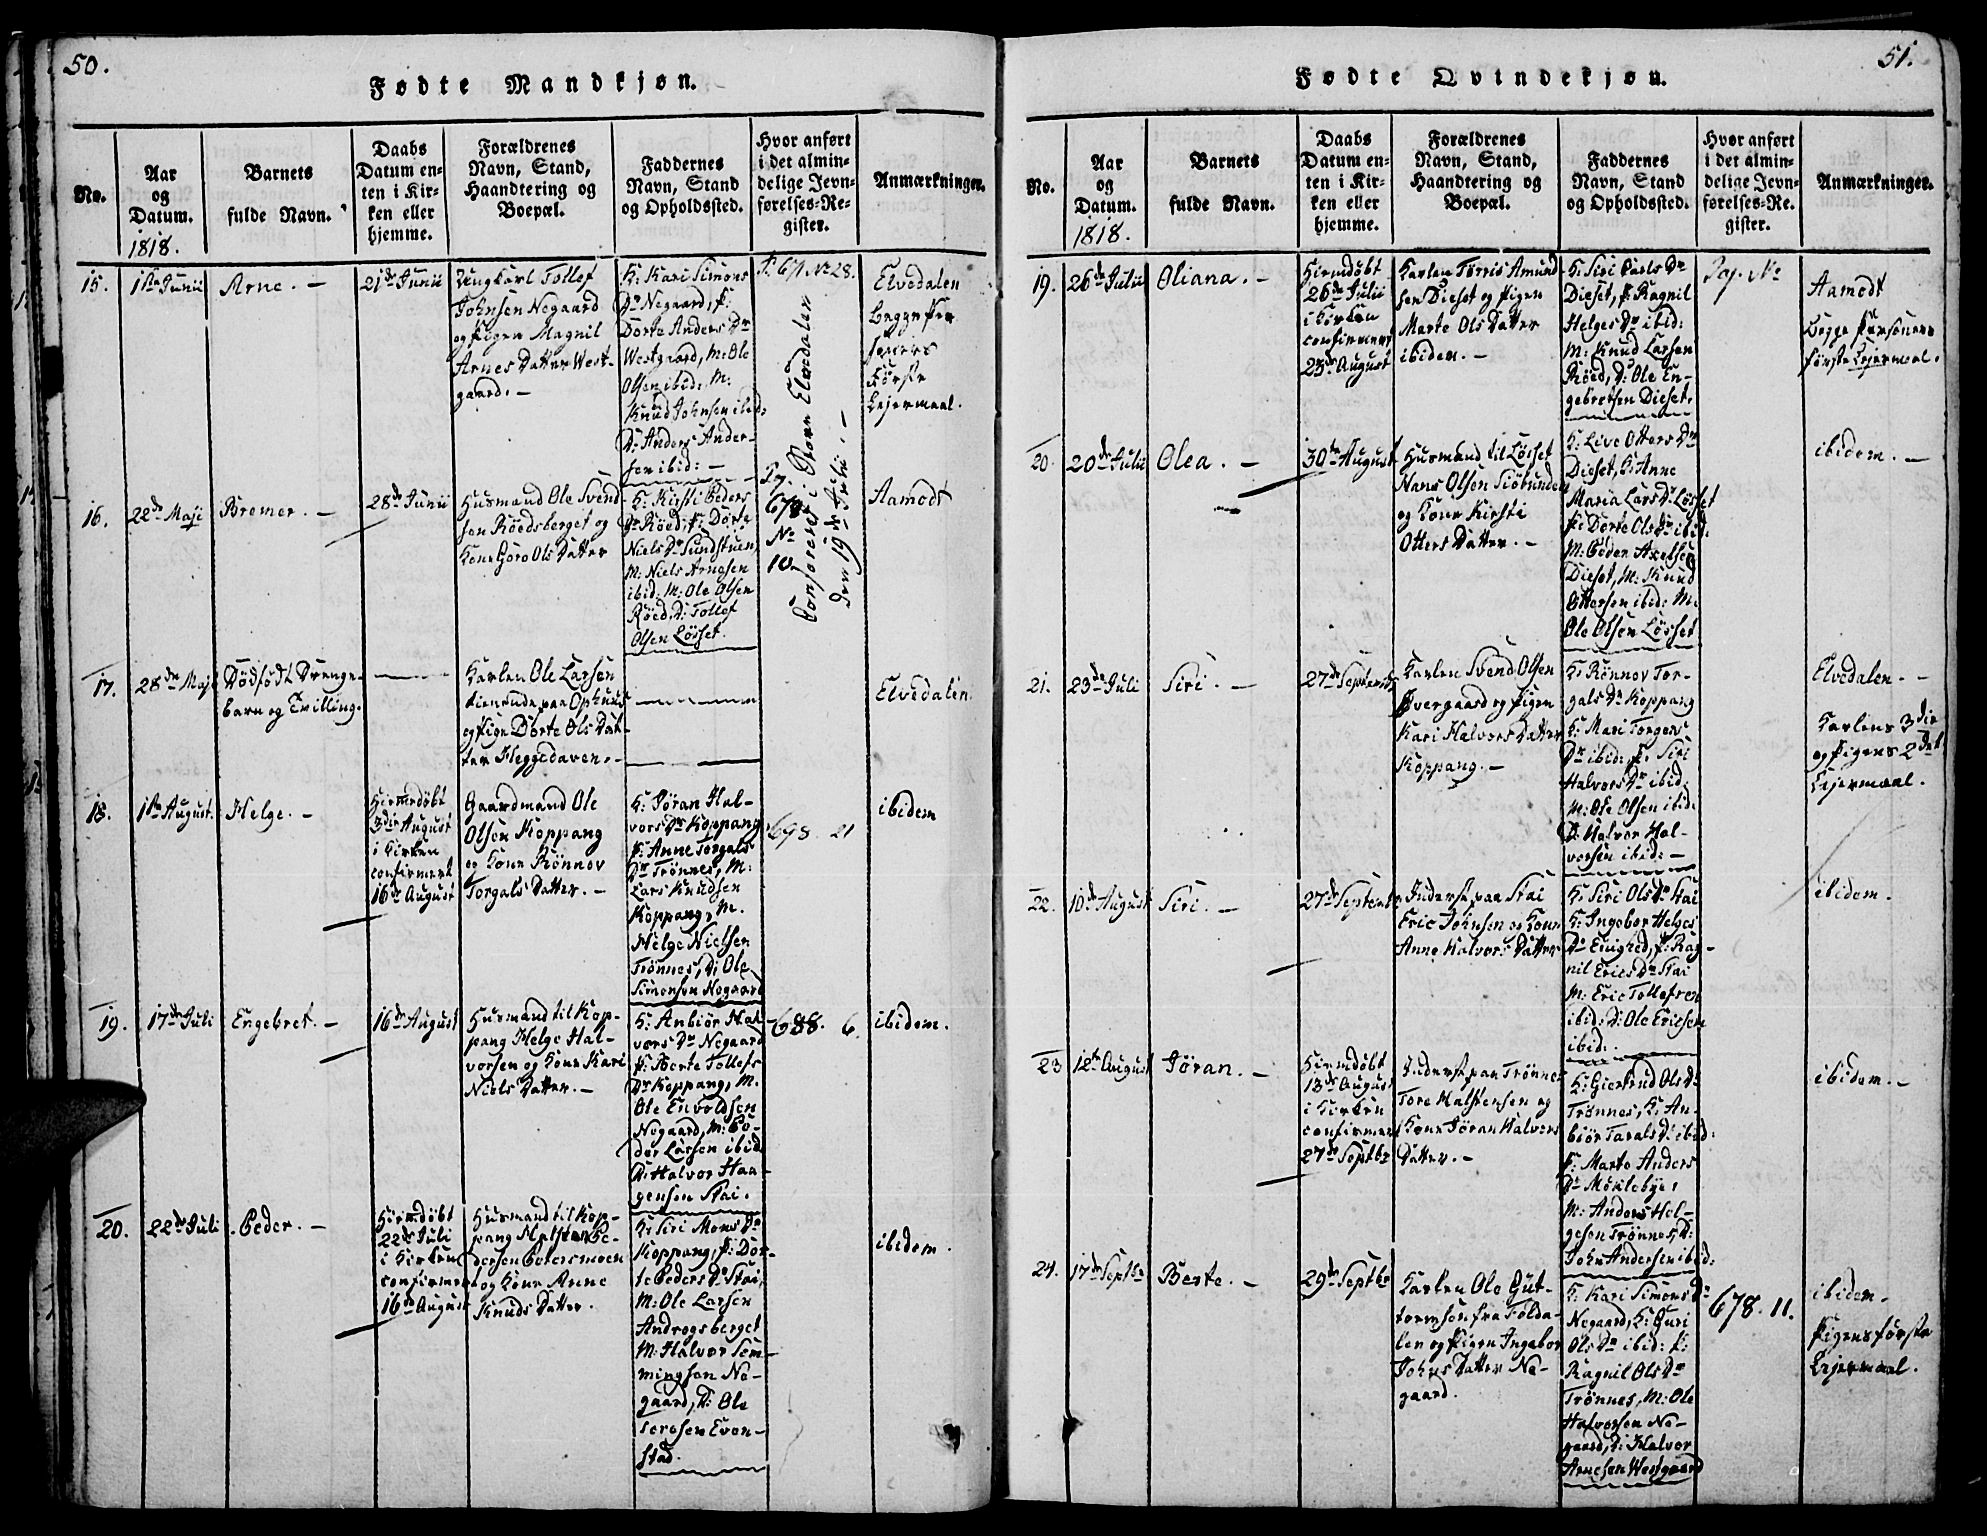 50.
Fødte Mandkjøn.
No.
Aar
og
Datum.
1818.
Barnets
fulde Navn.
Daabs
Datum en-
ten i Kir-
ken eller
hjemme.
Forældrenes
Navn, Stand,
Haandtering og
Boepæl.
Faddernes
Navn, Stand
og Opholdssted.
Hvor anført
i det almin-
delige Jevn-
førelses-Re-
gister.
Anmærkninger.
15.
1ste Junii
Arne. –
21de Junii
Ungkarl Tollef
Johnsen Negaard
og Pigen Magnil
Arnes Datter West-
gaard. –
K: Kari Simons
Dr Negaard, P:
Dorte Anders Dr
Westgaard, M: Ole
Olsen ibid: M:
Knud Johnsen ibid:
D: Anders Ander-
sen ibid: –
P. 671 No 28.
Copuleret i Store Elvedalen
den 19de Julii. –
Elvedalen
Begge Per
soners
første
Lejermaal.
16.
22de Maji
Bremer. –
28de Junii
Husmand Ole Svend
sen Röedsberget og
Kone Goro Ols Datter
K: Kirsti Peders
Dr Röed; P: Dorte
Niels Dr Sundstuen
M: Niels Arnesen
ibid: M: Ole Olsen
Röed, D: Tollef
Olsen Lösset.
Pag.
678
No
10.
Aamodt
17.
28de Maji
Dödfödt Drenge-
barn og Tvilling.
Karlen Ole Larsen
tienende paa Ophuus
og Pige Dorte Ols Dat-
ter Heggedaven. –
Elvedalen
18.
1ste August.
Helge. –
Hiemedöbt
3die August
i Kirken
confirmert
16de August
Gaardmand Ole
Olsen Koppang
og Kone Rönnov
Torgals Datter. –
K: Jöran Hal-
vors Dr Koppang
P: Anne Torgals
Dr Trönnes, M:
Lars Knudsen
Koppang, M.
Helge Nielsen
Trönnes, D: Ole
Simonsen Negaard
698. 21
ibidem
19.
17de Juli
Engebret. –
16de August
Husmand til Kop-
pang Helge Hal-
vorsen og Kone Kari
Niels Datter. –
K: Anbiör Hal
vors Dr Negaard
P: Berte Tollefs
Dr Koppang, M.
Ole Envoldsen
Negaard, M: Pe-
der Larsen ibid
D: Halvor Haa-
gensen Stai.
688. 6.
ibidem.
20.
22de Juli
Peder. –
Hiemedöbt
22de Juli
i Kirken
confirmert
16de August
Husmand til Kop-
pang Halsten Pe-
dersen Petersmoen
og Kone Anne
Knuds Datter.
K: Siri Mons Dr
Koppang, P: Dor-
te Peders Dr Stai,
M: Ole Larsen
Androgsberget
M: Halvor Sem-
mingsen Ne-
gaard, D: Ole
Toresen Even-
stad.
ibidem.
51.
Fødte Qvindekjøn.
No.
Aar
og
Datum.
1818.
Barnets
fulde Navn.
Daabs
Datum en-
ten i Kir-
ken eller
hjemme.
Forældrenes
Navn, Stand,
Haandtering og
Boepæl.
Faddernes
Navn, Stand
og Opholdssted.
Hvor anført
i det almin-
delige Jevn-
førelses-Re-
gister.
Anmærkninger.
19.
26de Julii
Oliana. –
Hiemdöbt
26de Julii
i Kirken
confirmert
23de August
Karlen Torris Amund
sen Dieset og Pigen
Marte Ols Datter
ibidem. –
K: Siri Carls Dr
Dieset, P: Ragnil
Helges Dr ibid:
M: Knud Larsen
Röed, D: Ole En-
gebretsen Dieset.
Pag. No
Aamodt
Begge Personers
förste Lejermaal.
20.
20de Julii
Olea. –
30te August
Husmand til Lösset
Hans Olsen Siöbunden
og Kone Kirsti
Otters Datter. –
K: Live Otters Dr
Dieset, K: Anne
Maria Lars Dr Lösset
P: Dorte Ols Dr ibid:
M: Peder Axelsen
Dieset, M: Knud
Ottersen ibid: M.
Ole Olsen Lösset
ibidem. –
21.
23de Juli
Siri. –
27de Septembr
Karlen Svend Olsen
Övergaard og Pigen
Kari Halvors Datter
Koppang. –
K: Rönnov Tor-
gals Dr Koppang
K: Mari Torgers
Dr ibid: P. Siri
Halvors Dr ibid
M: Ole Olsen ibid:
D: Halvor Hal-
vorsen ibid: –
Elvedalen. –
Karlens 3die
og Pigens 2det
Lejermaal.
22.
10de August
Siri. –
27de Septembr
Inderst paa Stai
Eric Johnsen og Kone
Anne Halvors Datter
K: Siri Ols Dr Stai
K: Ingebor Helges
Dr Enighed, P: Rag-
nil Erics Dr Stai
M: Eric Tollefsen
ibid: D: Ole Ericsen
ibid:
ibidem.
23
12te August
Jöran. –
Hiemdöbt
13de August
i Kirken
confirmert
27de Septbr
Inderst paa Trönnes
Tore Halstensen og
Kone Jöran Halvors
Datter. –
K: Giertrud Ols Dr
Trönnes, K: An-
biör Tarals Dr ibid:
P: Marte Anders
Dr Möklebye,
M: Anders Hel-
gesen Trönnes D:
John Andersen ibid:
ibidem. –
24.
17de Septbr
Berte. –
29de Septbr
Karlen Ole Gut-
tormsen fra Folda-
len og Pigen Ingebor
Johns Datter Ne-
gaard.
K: Kari Simons Dr
Negaard, K: Guri
Ols Dr ibid: P:
Ragnil Ols Dr
Trönnes, M: Ole
Halvorsen Ne-
gaard, D: Halvor
Arnesen Westgaard
678. 11.
ibidem.
Pigens förste
Lejermaal.